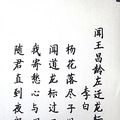 闻王昌龄左迁龙标
李白
杨花落尽子
闻道龙标过
我寄愁心与
随君直到夜